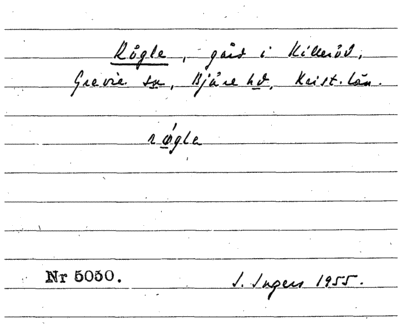 Rögle, gård i Killeröd,
Grevie sn, Bjäre hd, Krist. län.
rø̀gle
Nr 5050.
I. Ingers 1955.